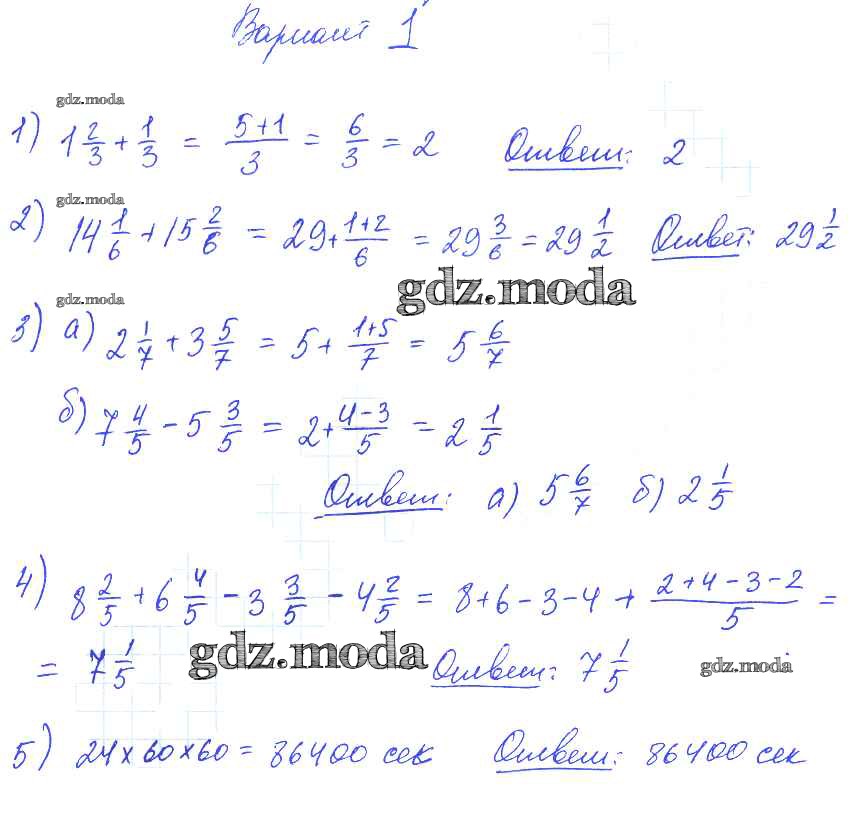 Вариант 1
gdz.moda
1) 1 2/3 + 1/3 = (5+1)/3 = 6/3 = 2 Ответ: 2
gdz.moda
2) 14 1/6 + 15 2/6 = 29 + (1+2)/6 = 29 3/6 = 29 1/2 Ответ: 29 1/2
gdz.moda
gdz.moda
3) а) 2 1/7 + 3 5/7 = 5 + (1+5)/7 = 5 6/7
б) 7 4/5 - 5 3/5 = 2 + (4-3)/5 = 2 1/5
Ответ: а) 5 6/7 б) 2 1/5
4) 8 2/5 + 6 4/5 - 3 3/5 - 4 2/5 = 8+6-3-4 + (2+4-3-2)/5 =
= 7 1/5 gdz.moda Ответ: 7 1/5 gdz.moda
5) 24×60×60 = 86400 сек Ответ: 86400 сек